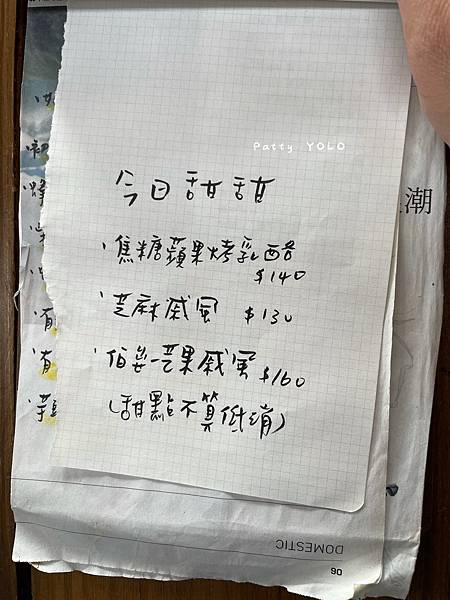 Patty YOLO
潮
今日甜甜
焦糖蘋果烤乳酪
$140
芝麻戚風 $130
伯爵芒果戚風 $160
(甜點不算低消)
DOMESTIC
06